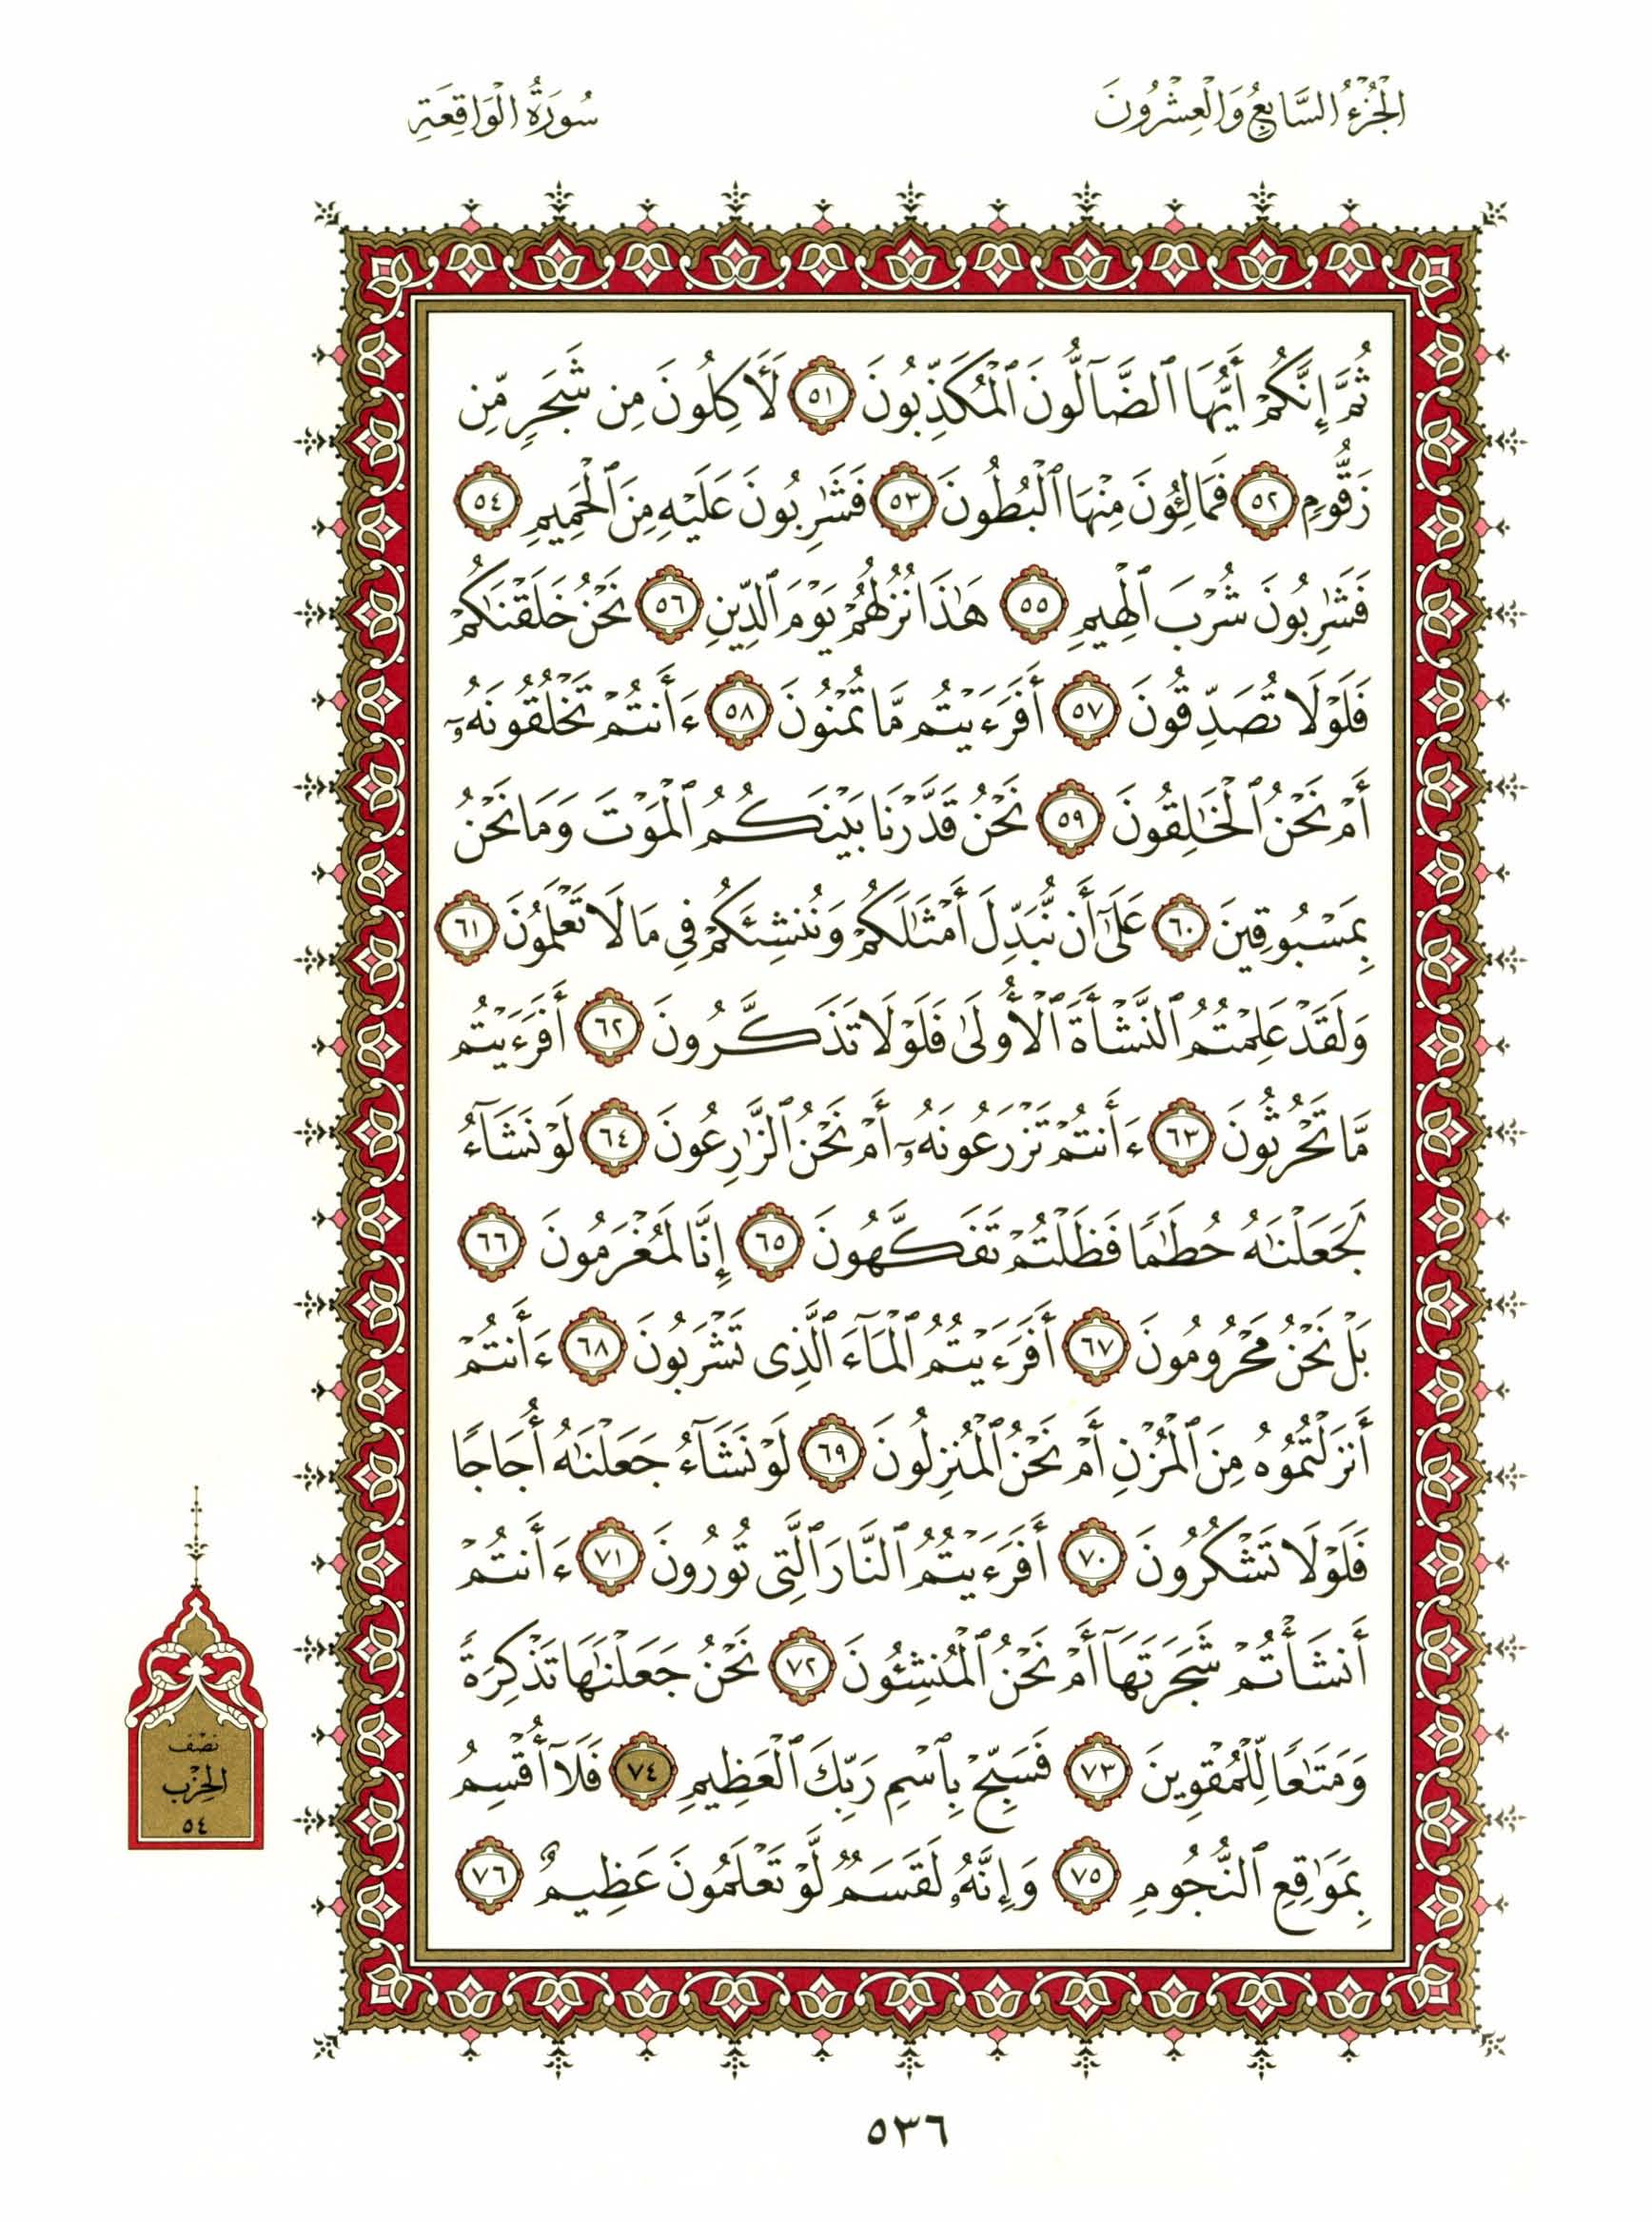 الجُزْءُ السَّابِعُ وَالْعِشْرُونَ
سُورَةُ الْوَاقِعَةِ
ثُمَّ إِنَّكُمْ أَيُّهَا ٱلضَّآلُّونَ ٱلْمُكَذِّبُونَ ٥١ لَأَكِلُونَ مِن شَجَرٍ مِّن
زَقُّومٍ ٥٢ فَمَالِـُٔونَ مِنْهَا ٱلْبُطُونَ ٥٣ فَشَٰرِبُونَ عَلَيْهِ مِنَ ٱلْحَمِيمِ ٥٤
فَشَٰرِبُونَ شُرْبَ ٱلْهِيمِ ٥٥ هَٰذَا نُزُلُهُمْ يَوْمَ ٱلدِّينِ ٥٦ نَحْنُ خَلَقْنَٰكُمْ
فَلَوْلَا تُصَدِّقُونَ ٥٧ أَفَرَءَيْتُم مَّا تُمْنُونَ ٥٨ ءَأَنتُمْ تَخْلُقُونَهُۥٓ
أَمْ نَحْنُ ٱلْخَٰلِقُونَ ٥٩ نَحْنُ قَدَّرْنَا بَيْنَكُمُ ٱلْمَوْتَ وَمَا نَحْنُ
بِمَسْبُوقِينَ ٦٠ عَلَىٰٓ أَن نُّبَدِّلَ أَمْثَٰلَكُمْ وَنُنشِئَكُمْ فِى مَا لَا تَعْلَمُونَ ٦١
وَلَقَدْ عَلِمْتُمُ ٱلنَّشْأَةَ ٱلْأُولَىٰ فَلَوْلَا تَذَكَّرُونَ ٦٢ أَفَرَءَيْتُم
مَّا تَحْرُثُونَ ٦٣ ءَأَنتُمْ تَزْرَعُونَهُۥٓ أَمْ نَحْنُ ٱلزَّٰرِعُونَ ٦٤ لَوْ نَشَآءُ
لَجَعَلْنَٰهُ حُطَٰمًا فَظَلْتُمْ تَفَكَّهُونَ ٦٥ إِنَّا لَمُغْرَمُونَ ٦٦
بَلْ نَحْنُ مَحْرُومُونَ ٦٧ أَفَرَءَيْتُمُ ٱلْمَآءَ ٱلَّذِى تَشْرَبُونَ ٦٨ ءَأَنتُمْ
أَنزَلْتُمُوهُ مِنَ ٱلْمُزْنِ أَمْ نَحْنُ ٱلْمُنزِلُونَ ٦٩ لَوْ نَشَآءُ جَعَلْنَٰهُ أُجَاجًا
فَلَوْلَا تَشْكُرُونَ ٧٠ أَفَرَءَيْتُمُ ٱلنَّارَ ٱلَّتِى تُورُونَ ٧١ ءَأَنتُمْ
أَنشَأْتُمْ شَجَرَتَهَآ أَمْ نَحْنُ ٱلْمُنشِـُٔونَ ٧٢ نَحْنُ جَعَلْنَٰهَا تَذْكِرَةً
وَمَتَٰعًا لِّلْمُقْوِينَ ٧٣ فَسَبِّحْ بِٱسْمِ رَبِّكَ ٱلْعَظِيمِ ٧٤ فَلَآ أُقْسِمُ
بِمَوَٰقِعِ ٱلنُّجُومِ ٧٥ وَإِنَّهُۥ لَقَسَمٌ لَّوْ تَعْلَمُونَ عَظِيمٌ ٧٦
نصف
الحزب
٥٤
٥٣٦